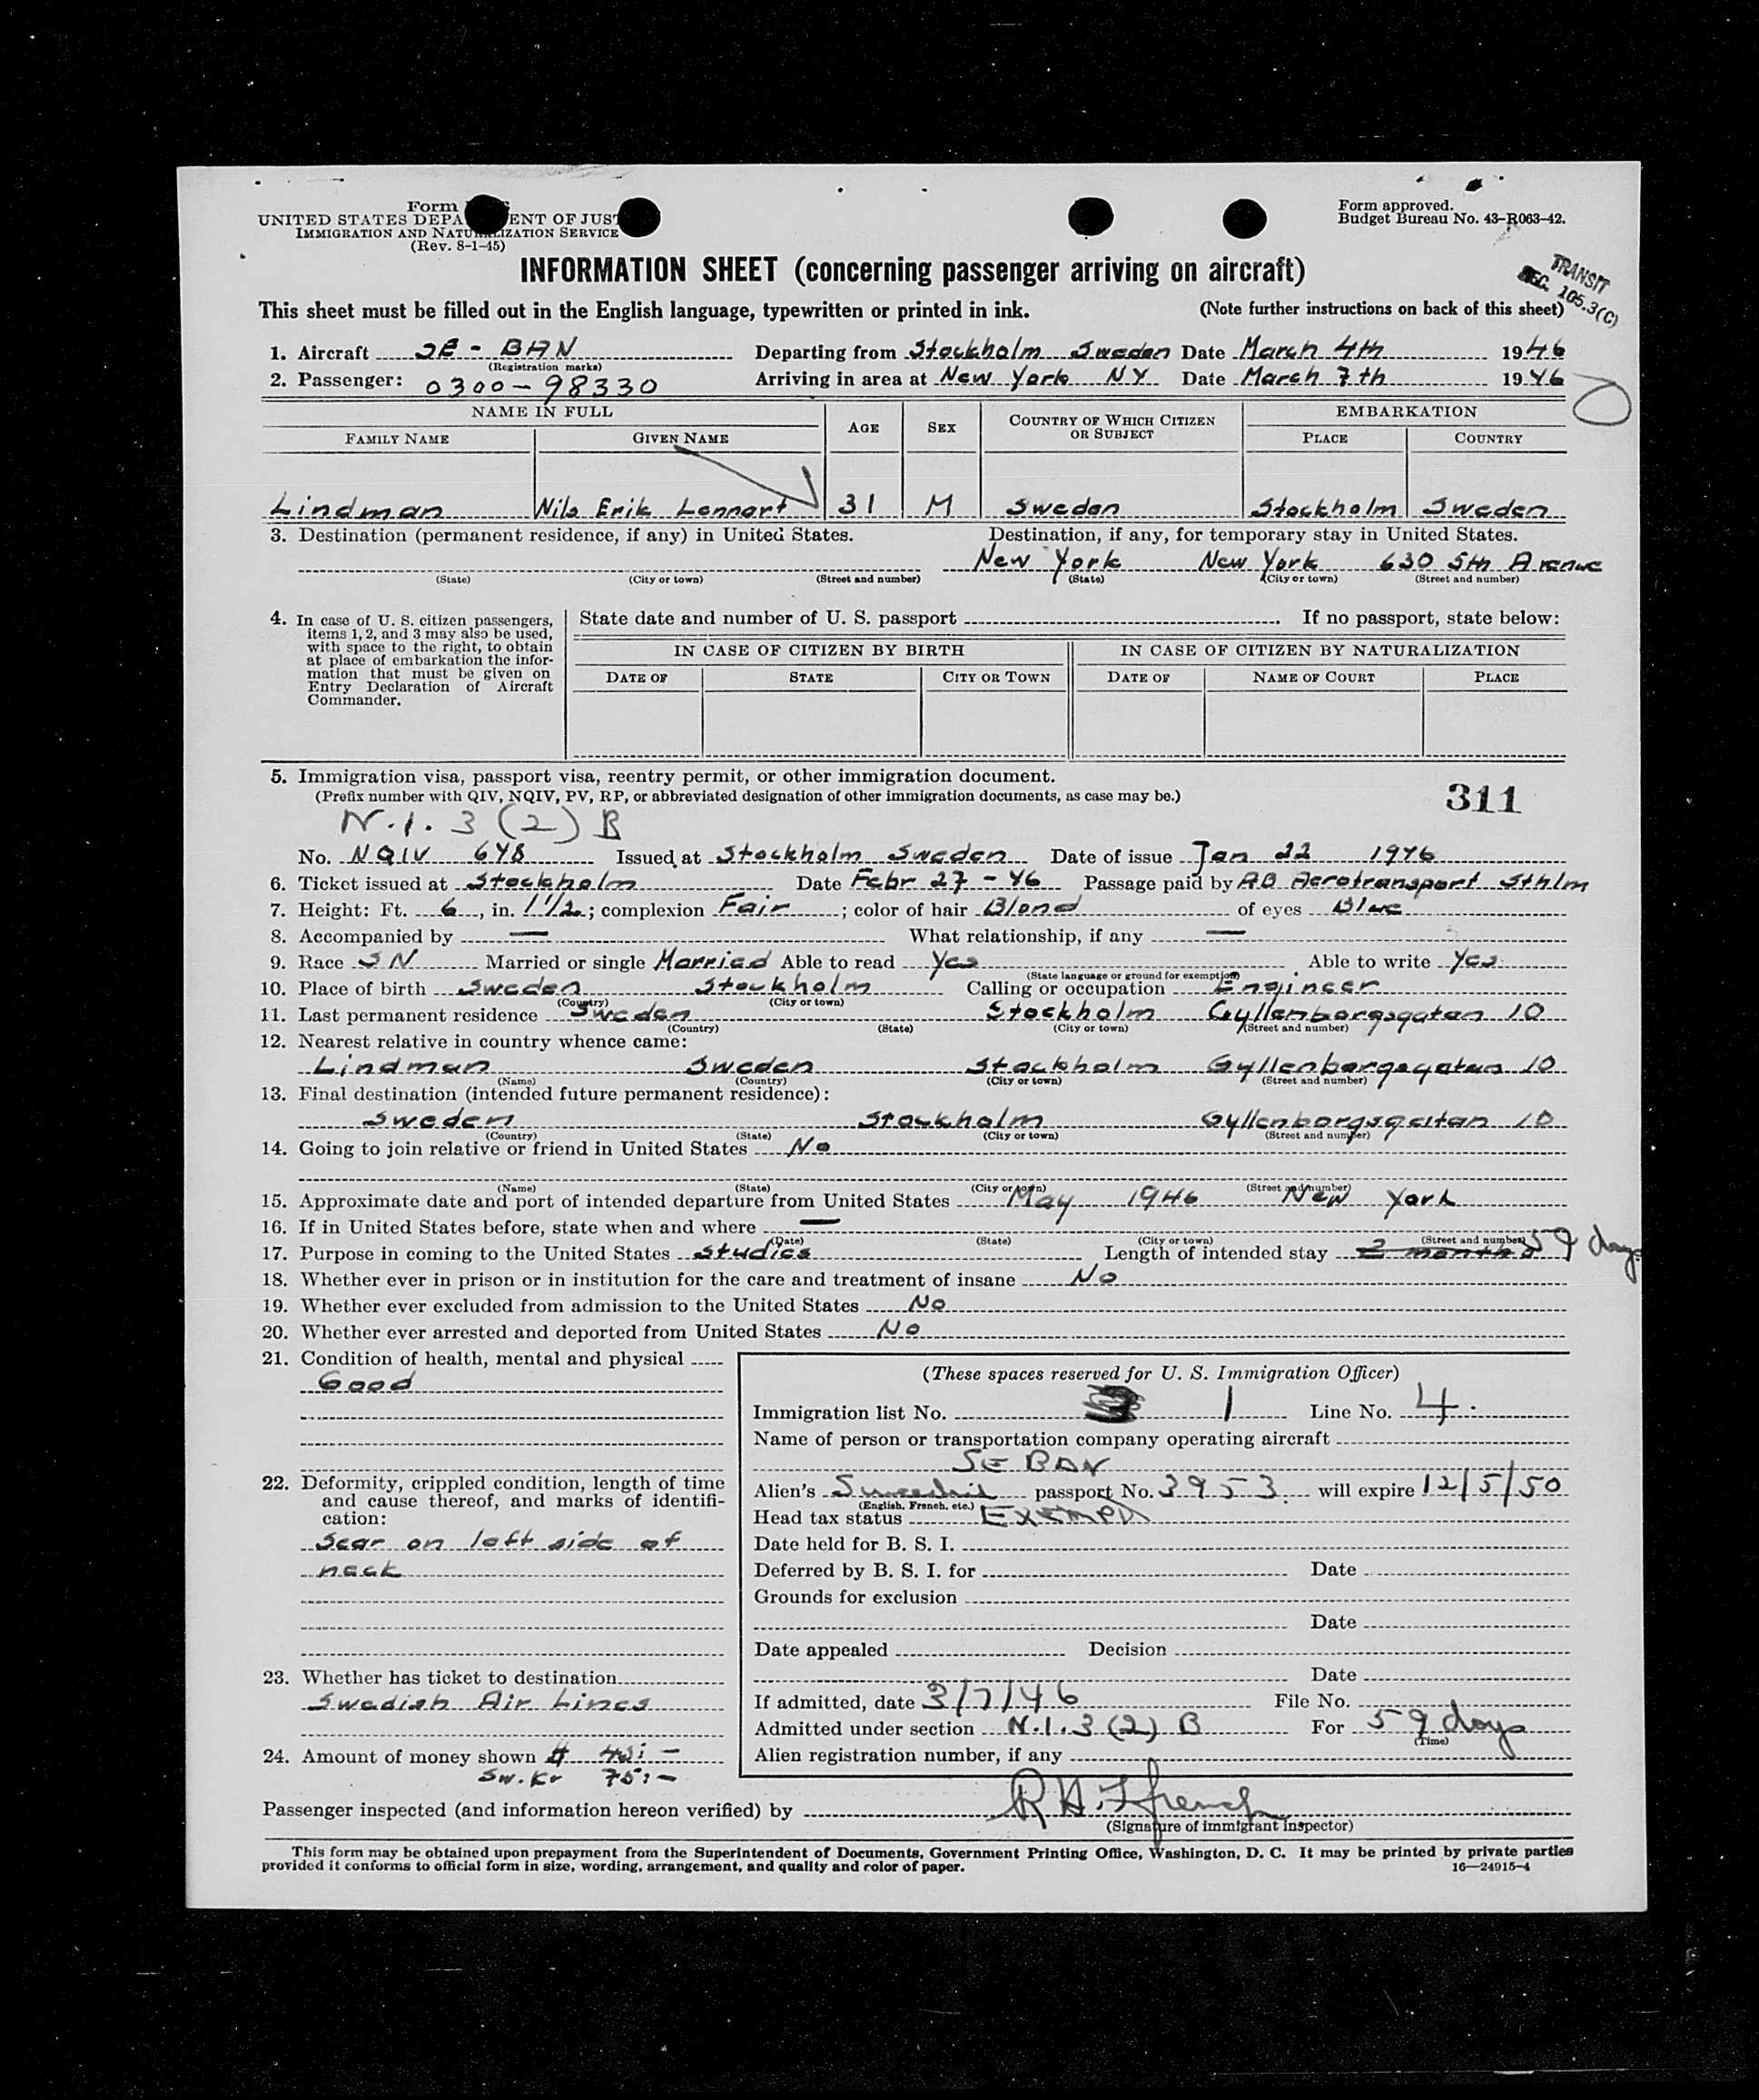 Form
UNITED STATES DEPA ENT OF JUST
IMMIGRATION AND NATURALIZATION SERVICE
(Rev. 8-1-45)
Form approved.
Budget Bureau No. 43-R063-42.
INFORMATION SHEET (concerning passenger arriving on aircraft)
TRANSIT
SEC. 105.3(C)
This sheet must be filled out in the English language, typewritten or printed in ink. (Note further instructions on back of this sheet)
1. Aircraft SE - BAN Departing from Stockholm Sweden Date March 4th 1946
(Registration marks)
2. Passenger: 0300-98330 Arriving in area at New York NY Date March 7th 1946
NAME IN FULL AGE SEX COUNTRY OF WHICH CITIZEN OR SUBJECT EMBARKATION
FAMILY NAME GIVEN NAME PLACE COUNTRY
Lindman Nils Erik Lennart 31 M Sweden Stockholm Sweden
3. Destination (permanent residence, if any) in United States. Destination, if any, for temporary stay in United States.
New York New York 630 5th Avenue
(State) (City or town) (Street and number) (State) (City or town) (Street and number)
4. In case of U. S. citizen passengers, items 1, 2, and 3 may also be used, with space to the right, to obtain at place of embarkation the information that must be given on Entry Declaration of Aircraft Commander.
State date and number of U. S. passport . If no passport, state below:
IN CASE OF CITIZEN BY BIRTH IN CASE OF CITIZEN BY NATURALIZATION
DATE OF STATE CITY OR TOWN DATE OF NAME OF COURT PLACE
5. Immigration visa, passport visa, reentry permit, or other immigration document.
(Prefix number with QIV, NQIV, PV, RP, or abbreviated designation of other immigration documents, as case may be.) 311
N.I. 3 (2) B
No. NQIV 648 Issued at Stockholm Sweden Date of issue Jan 22 1946
6. Ticket issued at Stockholm Date Febr 27 - 46 Passage paid by AB Aerotransport Sthlm
7. Height: Ft. 6, in. 1 1/2; complexion Fair; color of hair Blond of eyes Blue
8. Accompanied by — What relationship, if any —
9. Race SN Married or single Married Able to read Yes Able to write Yes
(State language or ground for exemption)
10. Place of birth Sweden Stockholm Calling or occupation Engineer
(Country) (City or town)
11. Last permanent residence Sweden Stockholm Gyllenborgsgatan 10
(Country) (State) (City or town) (Street and number)
12. Nearest relative in country whence came:
Lindman Sweden Stockholm Gyllenborgsgatan 10
(Name) (Country) (City or town) (Street and number)
13. Final destination (intended future permanent residence):
Sweden Stockholm Gyllenborgsgatan 10
(Country) (State) (City or town) (Street and number)
14. Going to join relative or friend in United States No
(Name) (State) (City or town) (Street and number)
15. Approximate date and port of intended departure from United States May 1946 New York
16. If in United States before, state when and where —
(Date) (State) (City or town) (Street and number)
17. Purpose in coming to the United States Studies Length of intended stay 2 months 59 days
18. Whether ever in prison or in institution for the care and treatment of insane No
19. Whether ever excluded from admission to the United States No
20. Whether ever arrested and deported from United States No
21. Condition of health, mental and physical
Good
22. Deformity, crippled condition, length of time and cause thereof, and marks of identification:
Scar on left side of
neck
23. Whether has ticket to destination
Swedish Air Lines
24. Amount of money shown $ 45:-
Sw.Kr 75:-
(These spaces reserved for U. S. Immigration Officer)
Immigration list No. 1 Line No. 4.
Name of person or transportation company operating aircraft
SE BAN
Alien's Swedish passport No. 3953. will expire 12/5/50
(English, French, etc.)
Head tax status Exempt
Date held for B. S. I.
Deferred by B. S. I. for Date
Grounds for exclusion
Date
Date appealed Decision
Date
If admitted, date 3/7/46 File No.
Admitted under section N.I. 3 (2) B For 59 days
(Time)
Alien registration number, if any
Passenger inspected (and information hereon verified) by R H. French
(Signature of immigrant inspector)
This form may be obtained upon prepayment from the Superintendent of Documents, Government Printing Office, Washington, D. C. It may be printed by private parties
provided it conforms to official form in size, wording, arrangement, and quality and color of paper. 16—24915-4